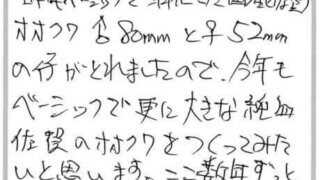 オオクワ♂80mmと♀52mm
の仔がとれましたので、今年も
ベーシックで更に大きな純血
佐賀のオオクワをつくってみた
いと思います。ここ数年ずっと